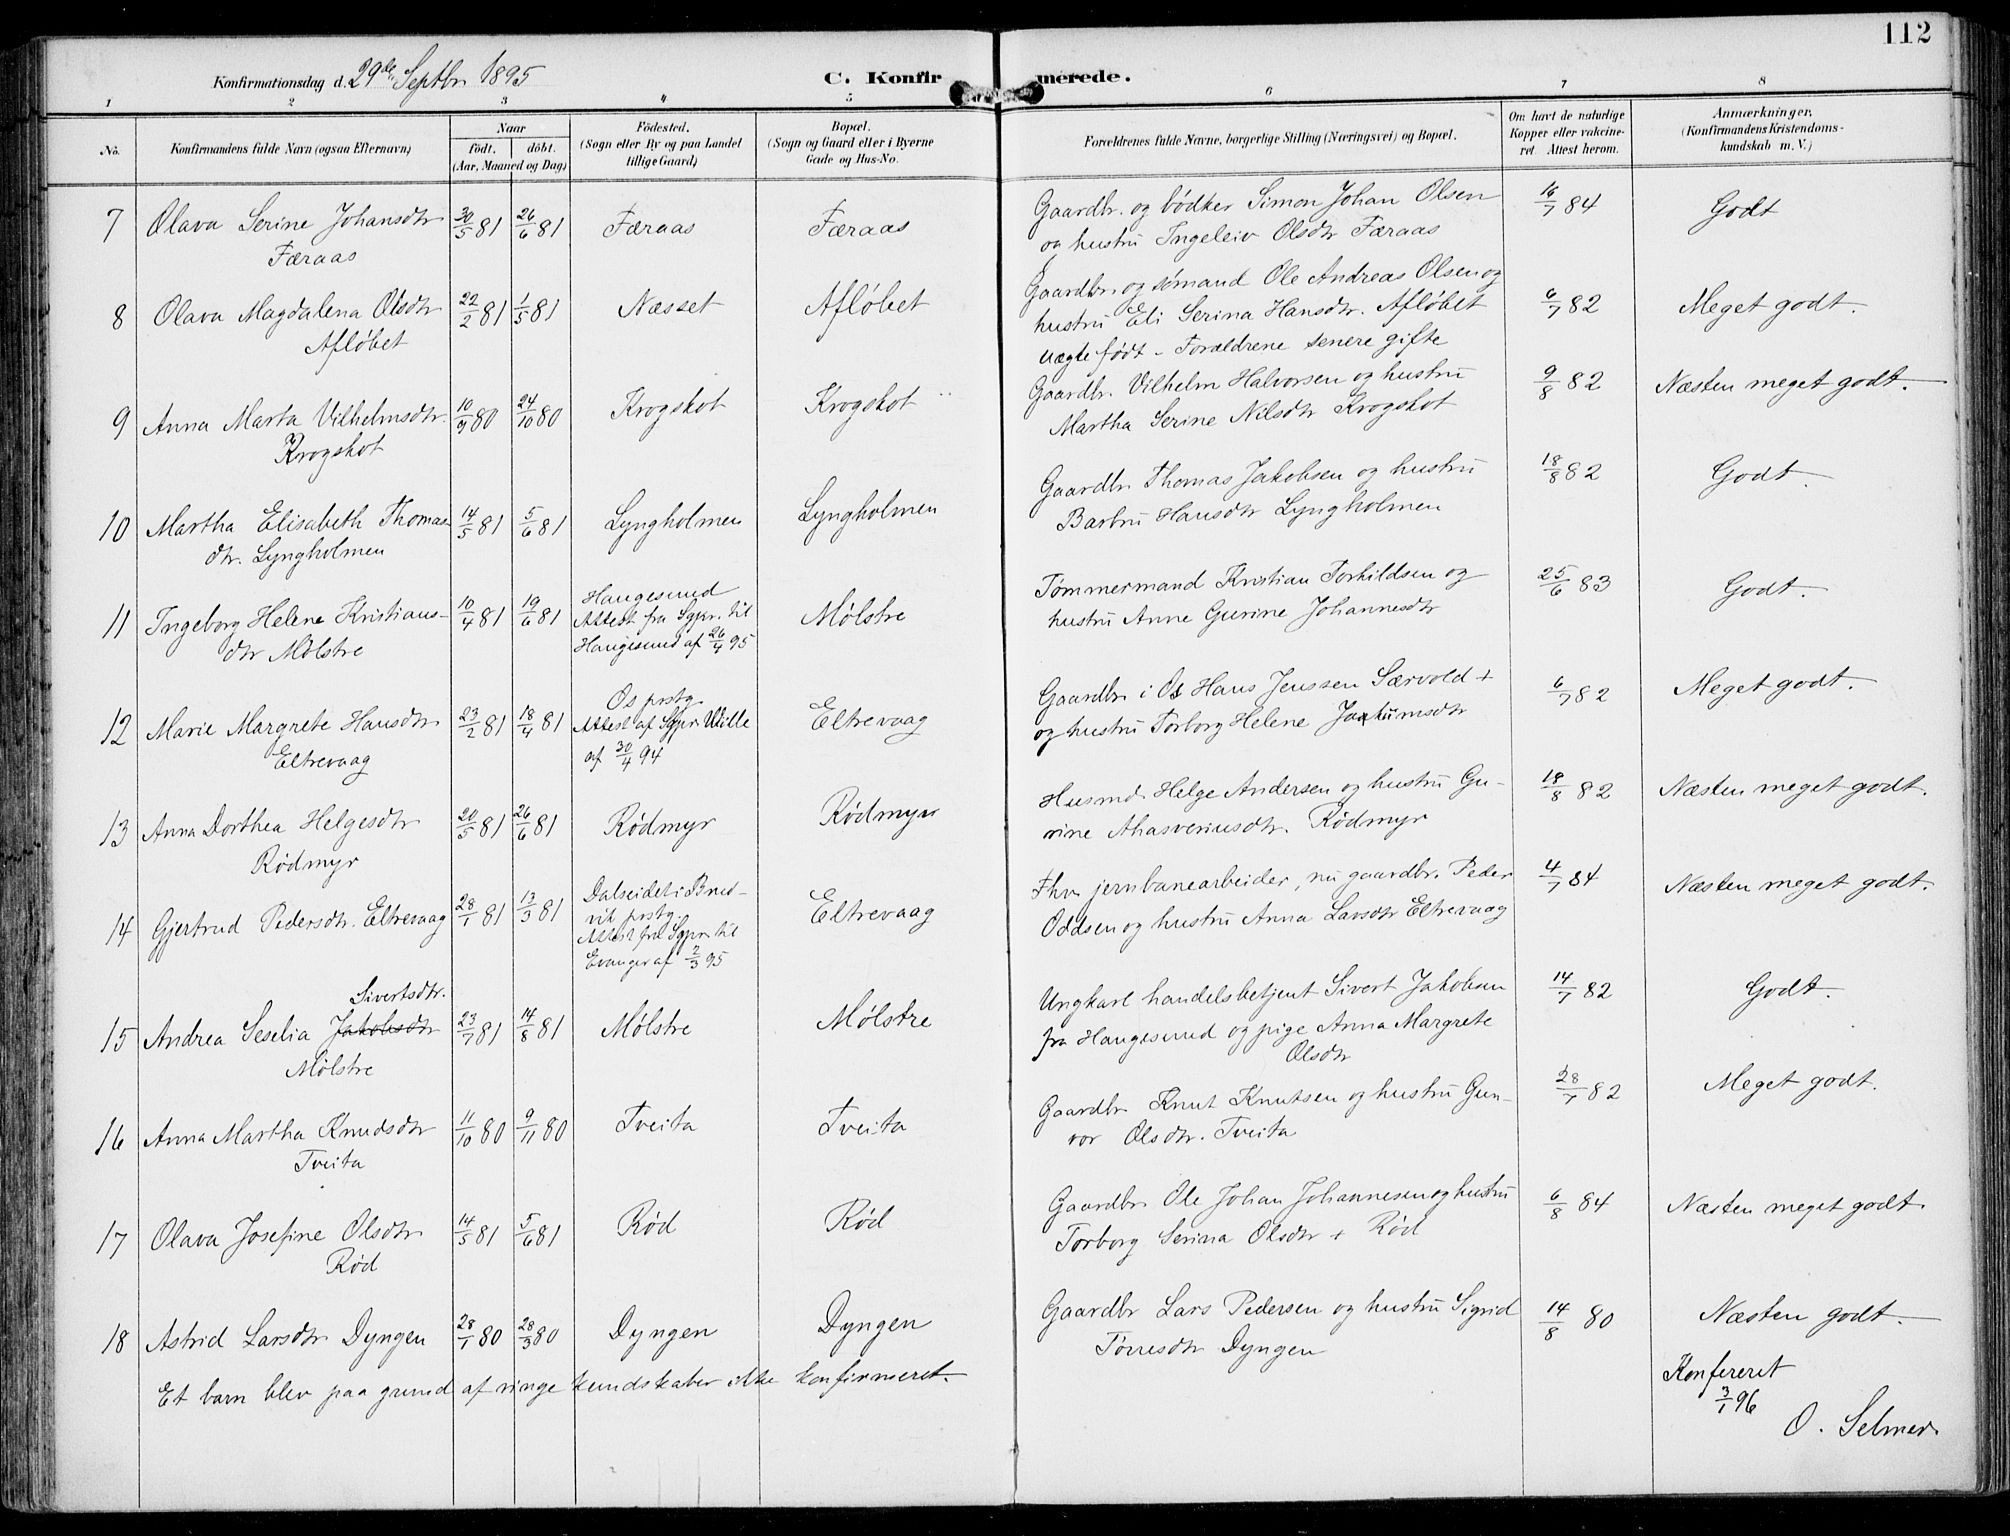 112
Konfirmationsdag d. 29de Septbr 1895
C. Konfirmerede.
1 2 3 4 5 6 7 8
No.
Konfirmandens fulde Navn (ogsaa Efternavn)
Naar
födt. döbt.
(Aar, Maaned og Dag)
Födested.
(Sogn eller By og paa Landet
tillige Gaard)
Bopæl.
(Sogn og Gaard eller i Byerne
Gade og Hus-No.
Forældrenes fulde Navne, borgerlige Stilling (Næringsvei) og Bopæl.
Om havt de naturlige
Kopper eller vakcine-
ret. Attest herom.
Anmærkninger.
(Konfirmandens Kristendoms-
kundskab m. V.)
7 Olava Serine Johansdtr 30/5 81 26/6 81 Færaas Færaas Gaardbr. og bødker Simon Johan Olsen 16/7 84 Godt
Færaas og hustru Ingeleiv Olsdtr Færaas
8 Olava Magdalena Olsdtr 22/2 81 1/5 81 Næsset Afløbet Gaardbr. og sømand Ole Andreas Olsen og 6/7 82 Meget godt.
Afløbet hustru Eli Serina Hansdtr. Afløbet
uægte født - Forældrene senere gifte
9 Anna Marta Vilhelmsdtr. 10/9 80 24/10 80 Krogskot Krogskot Gaardbr. Vilhelm Halvorsen og hustru 9/8 82 Næsten meget godt.
Krogskot Martha Serine Nilsdtr Krogskot
10 Martha Elisabeth Thomas- 14/5 81 5/6 81 Lyngholmen Lyngholmen Gaardbr. Thomas Jakobsen og hustru 18/8 82 Godt.
dtr. Lyngholmen Barbru Hansdtr Lyngholmen
11 Ingeborg Helene Kristians- 10/4 81 19/6 81 Haugesund Mølstre Tømmermand Kristian Torkildsen og 25/6 83 Godt.
dtr Mølstre Attest fra Sgpr. til hustru Anne Gurine Johannesdtr
Haugesund af 26/4 95
12 Marie Margrete Hansdtr 23/2 81 18/4 81 Os prstg. Eltrevaag Gaardbr i Os Hans Jenssen Særvold + 6/7 82 Meget godt.
Eltrevaag Attest af Sgpr. Wille og hustru Torborg Helene
af 30/4 94
13 Anna Dorthea Helgesdtr 20/5 81 26/6 81 Rødmyr Rødmyr Husmd. Helge Andersen og hustru Gu- 18/8 82 Næsten meget godt.
Rødmyr rine Ahasveriusdtr. Rødmyr
14 Gjertrud Pedersdtr. Eltrevaag 28/1 81 13/3 81 Dalseidet i Bruvik prstg. Eltrevaag Fhv. jernbanearbeider, nu gaardbr. Peder 4/7 84 Næsten meget godt.
Attest fra Sgpr. til Oddsen og hustru Anna Larsdtr Eltrevaag
Evanger af 2/3 95
Sivertsdtr.
15 Andrea Seselia Jakobsdtr 23/7 81 14/8 81 Mølstre Mølstre Ungkarl handelsbetjent Sivert Jakobsen 14/7 82 Godt.
Mølstre fra Haugesund og pige Anna Margrete
Olsdtr
16 Anna Martha Knudsdtr 11/10 80 9/11 80 Tveita Tveita Gaardbr. Knut Knutsen og hustru Gun- 28/7 82 Meget godt.
Tveita vor Olsdtr. Tveita
17 Olava Josefine Olsdtr 14/5 81 5/6 81 Rød Rød Gaardbr. Ole Johan Johannesen og hustru 6/8 84 Næsten meget godt.
Rød Torborg Serina Olsdtr + Rød
18 Astrid Larsdtr Dyngen 28/1 80 28/3 80 Dyngen Dyngen Gaardbr Lars Pedersen og hustru Sigrid 14/8 80 Næsten godt.
Tørresdtr Dyngen
Et barn blev paa grund af ringe kundskaber ikke konfirmeret.
Konfereret
3/1 96
O. Selmer